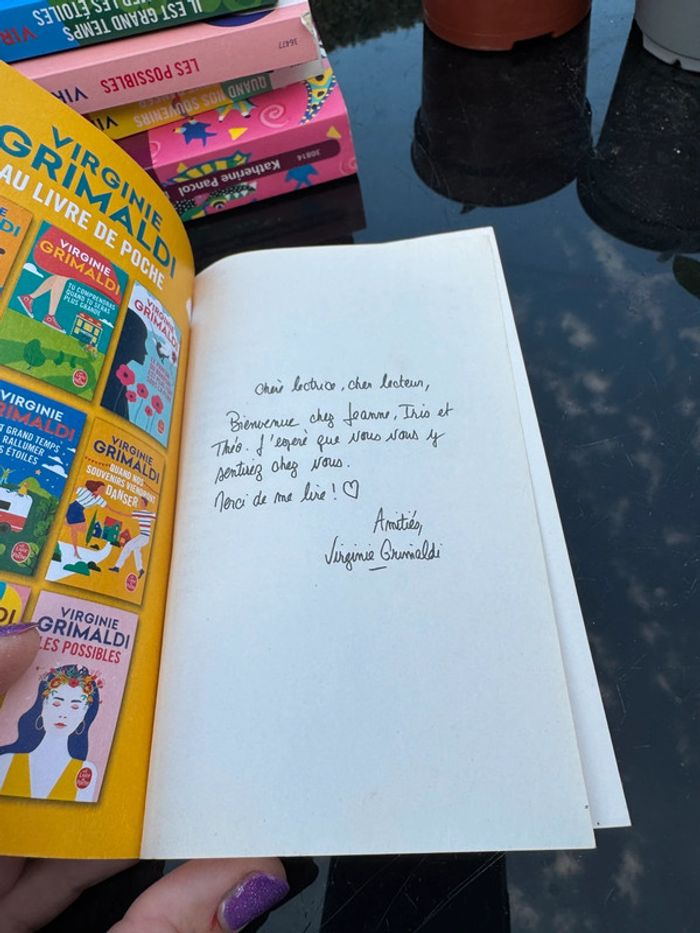 IL EST GRAND TEMPS
LES ÉTOILES
VIR
36477
LES POSSIBLES
VI
QUAND NOS SOUVENIRS
VI
30814
Katherine Pancol
VIRGINIE
GRIMALDI
AU LIVRE DE POCHE
VIRGINIE
GRIMALDI
TU COMPRENDRAS
QUAND TU SERAS
PLUS GRANDE
VIRGINIE
GRIMALDI
VIRGINIE
GRIMALDI
GRAND TEMPS
RALLUMER
ÉTOILES
VIRGINIE
GRIMALDI
QUAND NOS
SOUVENIRS VIENDRONT
DANSER
VIRGINIE
GRIMALDI
LES POSSIBLES
Chère lectrice, cher lecteur,
Bienvenue chez Jeanne, Iris et
Théo. J'espère que vous vous y
sentirez chez vous.
Merci de me lire ! ♡
Amitiés,
Virginie Grimaldi